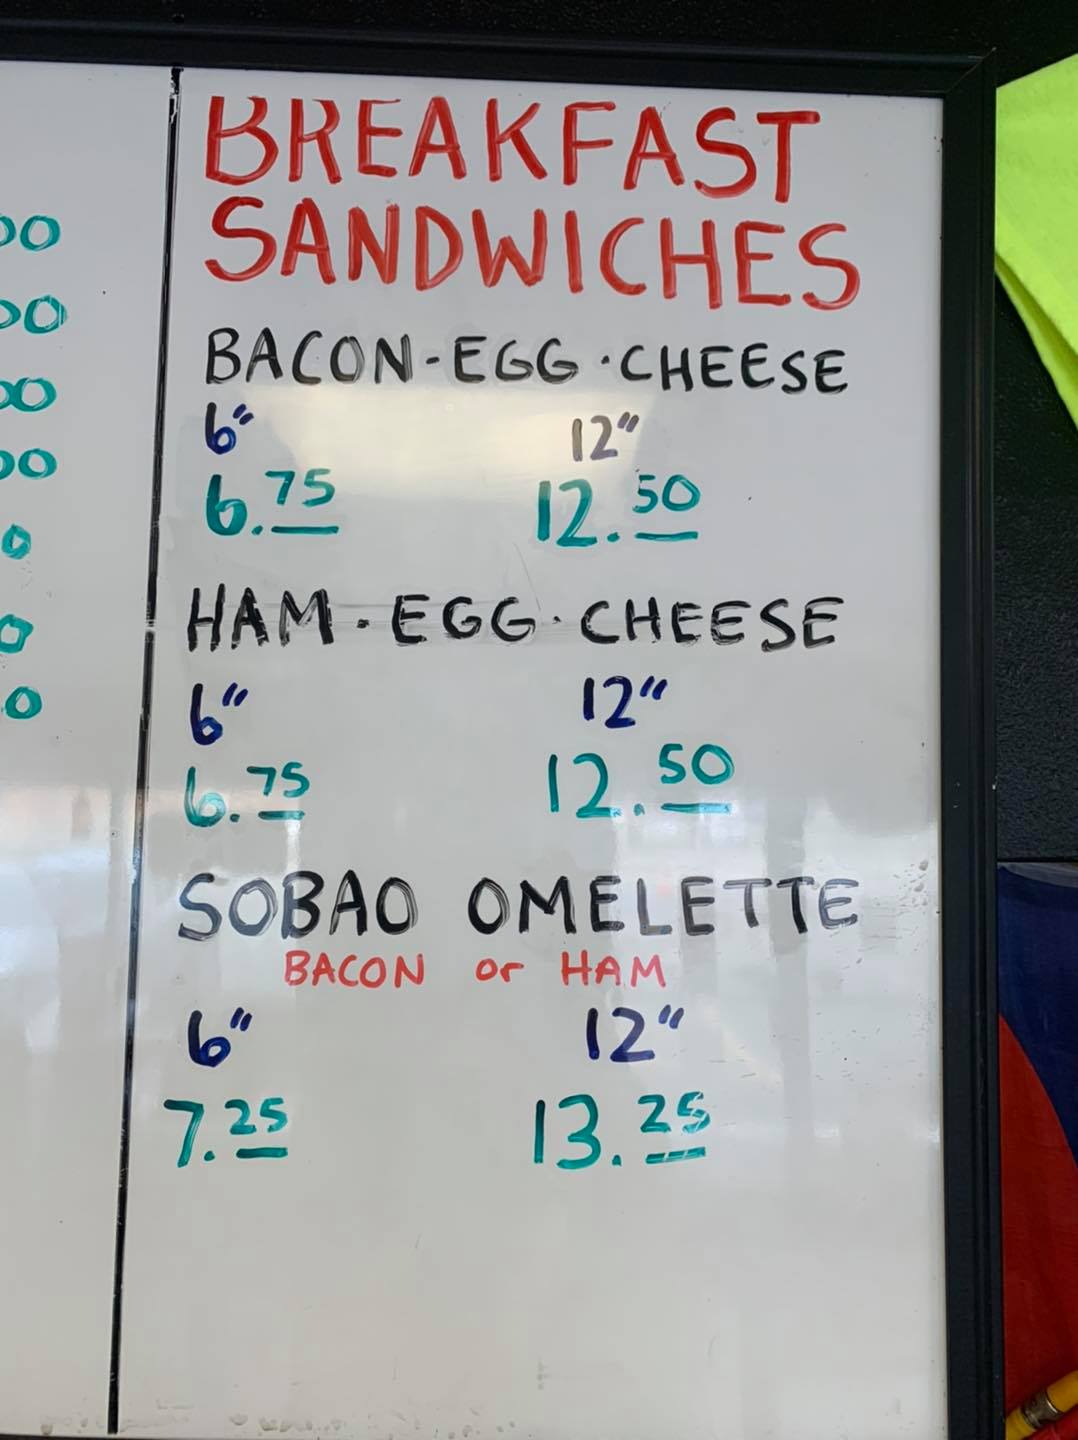 BREAKFAST
SANDWICHES
BACON-EGG·CHEESE
6" 12"
6.75 12.50
HAM·EGG·CHEESE
6" 12"
6.75 12.50
SOBAO OMELETTE
BACON or HAM
6" 12"
7.25 13.25